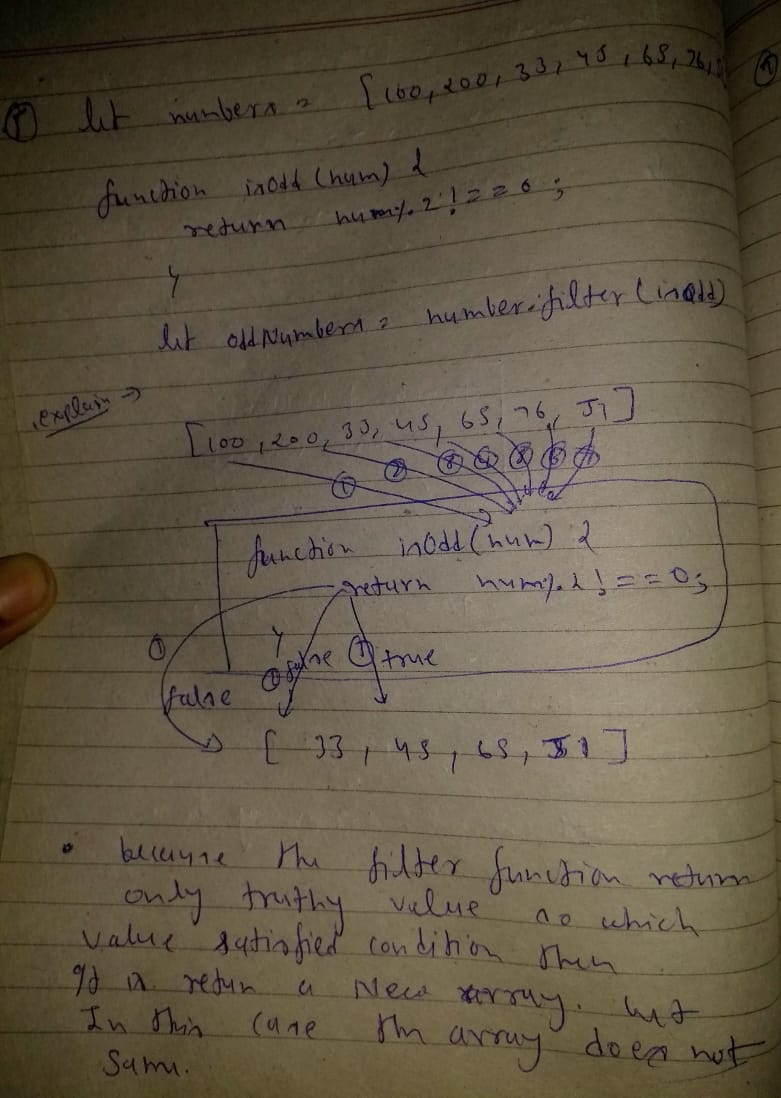 let numbers = [100, 200, 33, 45, 65, 76,
function isOdd (num) {
return num % 2 !== 0 ;
}
let oddNumbers = number.filter (isOdd)
explain →
[100, 200, 33, 45, 65, 76, 51]
① ② ③ ④ ⑤ ⑥ ⑦
function isOdd (num) {
return num % 2 !== 0 ;
}
① false ② false ⑦ true
[ 33, 45, 65, 51 ]
• because the filter function return
only truthy value so which
value satisfied condition then
It is retun a New array. but
In this case the array does not
same.